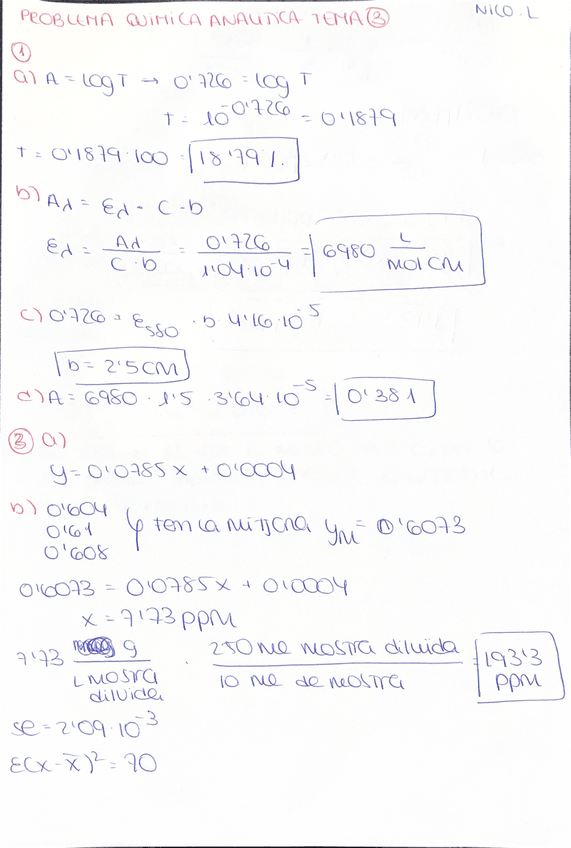 PROBLEMA QUIMICA ANALITICA TEMA ③
NICO. L
①
a) A = log T → 0'726 = log T
T = 10^-0'726 = 0'1879
T = 0'1879·100 = 18'79 %.
b) Aλ = Ελ · C · b
Ελ = Aλ / C·b = 0'726 / 1'04·10^-4 = 6980 L / mol CM
c) 0'726 = Ε580 · b · 4'16·10^-5
b = 2'5 CM
d) A = 6980 · 1'5 · 3'64·10^-5 = 0'381
③ a)
y = 0'0785x + 0'0004
b) 0'604
0'61
0'608
yM = 0'6073
0'6073 = 0'0785x + 0'0004
x = 7'73 PPM
7'73 g / L MOSTRA diluida · 250 ml mostra diluida / 10 ml de mostra = 193'3 PPM
se = 2'09·10^-3
Σ(x - x̄)² = 70